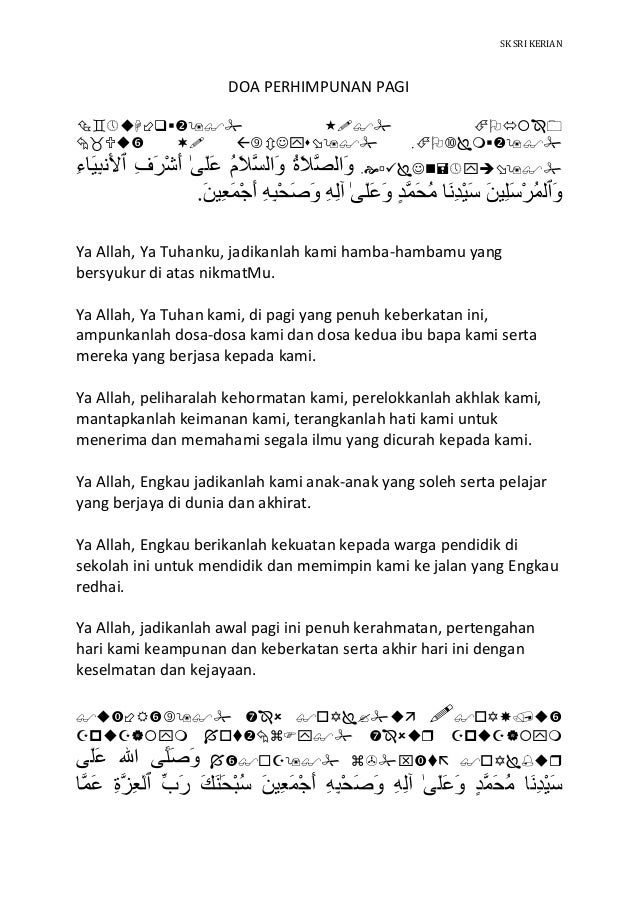 SK SRI KERIAN
DOA PERHIMPUNAN PAGI
وَالصَّلاَةُ وَالسَّلاَمُ عَلَىٰ أَشْرَفِ ٱلأَنبِيَاءِ
وَٱلمُرْسَلِينَ سَيْدِنَا مُحَمَّدٍ وَعَلَىٰ آلِهِ وَصَحْبِهِ أَجْمَعِينَ.
Ya Allah, Ya Tuhanku, jadikanlah kami hamba-hambamu yang
bersyukur di atas nikmatMu.
Ya Allah, Ya Tuhan kami, di pagi yang penuh keberkatan ini,
ampunkanlah dosa-dosa kami dan dosa kedua ibu bapa kami serta
mereka yang berjasa kepada kami.
Ya Allah, peliharalah kehormatan kami, perelokkanlah akhlak kami,
mantapkanlah keimanan kami, terangkanlah hati kami untuk
menerima dan memahami segala ilmu yang dicurah kepada kami.
Ya Allah, Engkau jadikanlah kami anak-anak yang soleh serta pelajar
yang berjaya di dunia dan akhirat.
Ya Allah, Engkau berikanlah kekuatan kepada warga pendidik di
sekolah ini untuk mendidik dan memimpin kami ke jalan yang Engkau
redhai.
Ya Allah, jadikanlah awal pagi ini penuh kerahmatan, pertengahan
hari kami keampunan dan keberkatan serta akhir hari ini dengan
keselmatan dan kejayaan.
وَصَلَّى الله عَلَى
سَيْدِنَا مُحَمَّدٍ وَعَلَىٰ آلِهِ وَصَحْبِهِ أَجْمَعِينَ سُبْحَٰنَكَ رَبِّ ٱلْعِزَّةِ عَمَّا